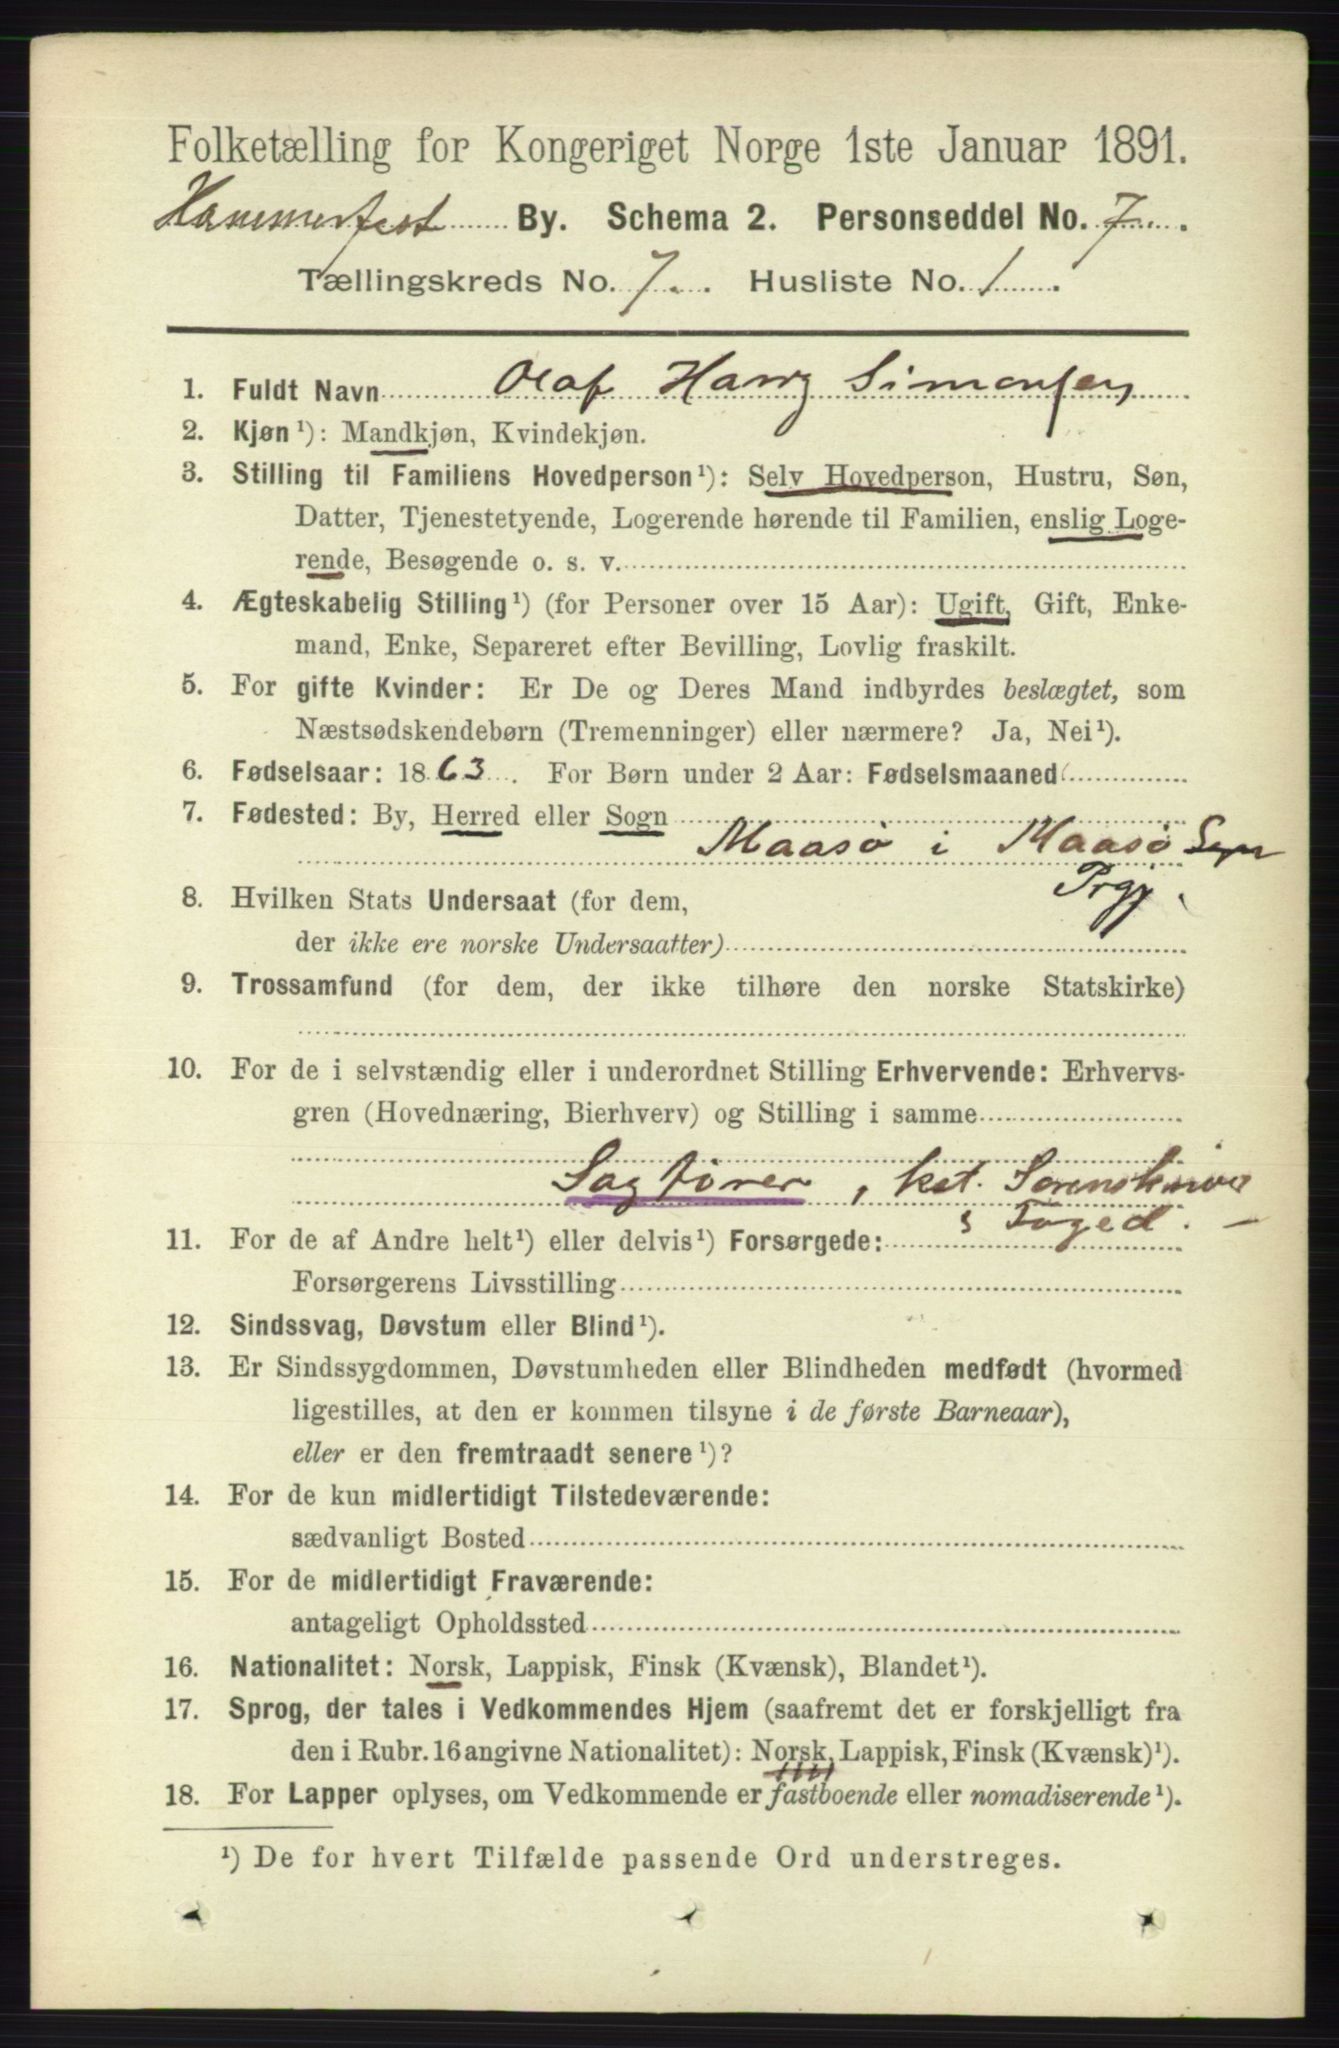 Folketælling for Kongeriget Norge 1ste Januar 1891.
Hammerfest By. Schema 2. Personseddel No. 7.
Tællingskreds No. 7. Husliste No. 1.
1. Fuldt Navn Olaf Harry Simonsen
2. Kjøn¹): Mandkjøn, Kvindekjøn.
3. Stilling til Familiens Hovedperson¹): Selv Hovedperson, Hustru, Søn,
Datter, Tjenestetyende, Logerende hørende til Familien, enslig Loge-
rende, Besøgende o. s. v.
4. Ægteskabelig Stilling¹) (for Personer over 15 Aar): Ugift, Gift, Enke-
mand, Enke, Separeret efter Bevilling, Lovlig fraskilt.
5. For gifte Kvinder: Er De og Deres Mand indbyrdes beslægtet, som
Næstsødskendebørn (Tremenninger) eller nærmere? Ja, Nei¹).
6. Fødselsaar: 1863. For Børn under 2 Aar: Fødselsmaaned
7. Fødested: By, Herred eller Sogn
Maasø i Maasø Sogn
Prgj.
8. Hvilken Stats Undersaat (for dem,
der ikke ere norske Undersaatter)
9. Trossamfund (for dem, der ikke tilhøre den norske Statskirke)
10. For de i selvstændig eller i underordnet Stilling Erhvervende: Erhvervs-
gren (Hovednæring, Bierhverv) og Stilling i samme
Sagfører, kst. Sorenskriver
& Foged.
11. For de af Andre helt¹) eller delvis¹) Forsørgede:
Forsørgerens Livsstilling
12. Sindssvag, Døvstum eller Blind¹).
13. Er Sindssygdommen, Døvstumheden eller Blindheden medfødt (hvormed
ligestilles, at den er kommen tilsyne i de første Barneaar),
eller er den fremtraadt senere¹)?
14. For de kun midlertidigt Tilstedeværende:
sædvanligt Bosted
15. For de midlertidigt Fraværende:
antageligt Opholdssted
16. Nationalitet: Norsk, Lappisk, Finsk (Kvænsk), Blandet¹).
17. Sprog, der tales i Vedkommendes Hjem (saafremt det er forskjelligt fra
den i Rubr. 16 angivne Nationalitet): Norsk, Lappisk, Finsk (Kvænsk)¹).
18. For Lapper oplyses, om Vedkommende er fastboende eller nomadiserende¹).
¹) De for hvert Tilfælde passende Ord understreges.